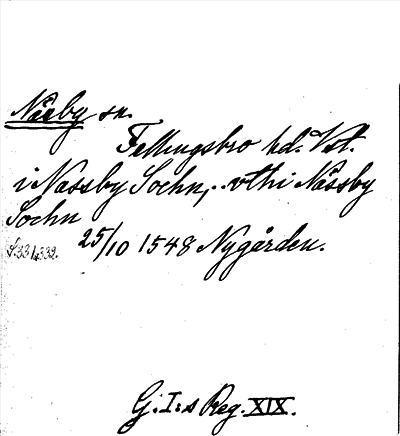 Näsby sn.
Fellingsbro hd. Vstm.
i Nässby Sochn, .. vthi Nässby
Sochn
25/10 1548 Nygården.
S. 331, 332.
G. I:s Reg. XIX.